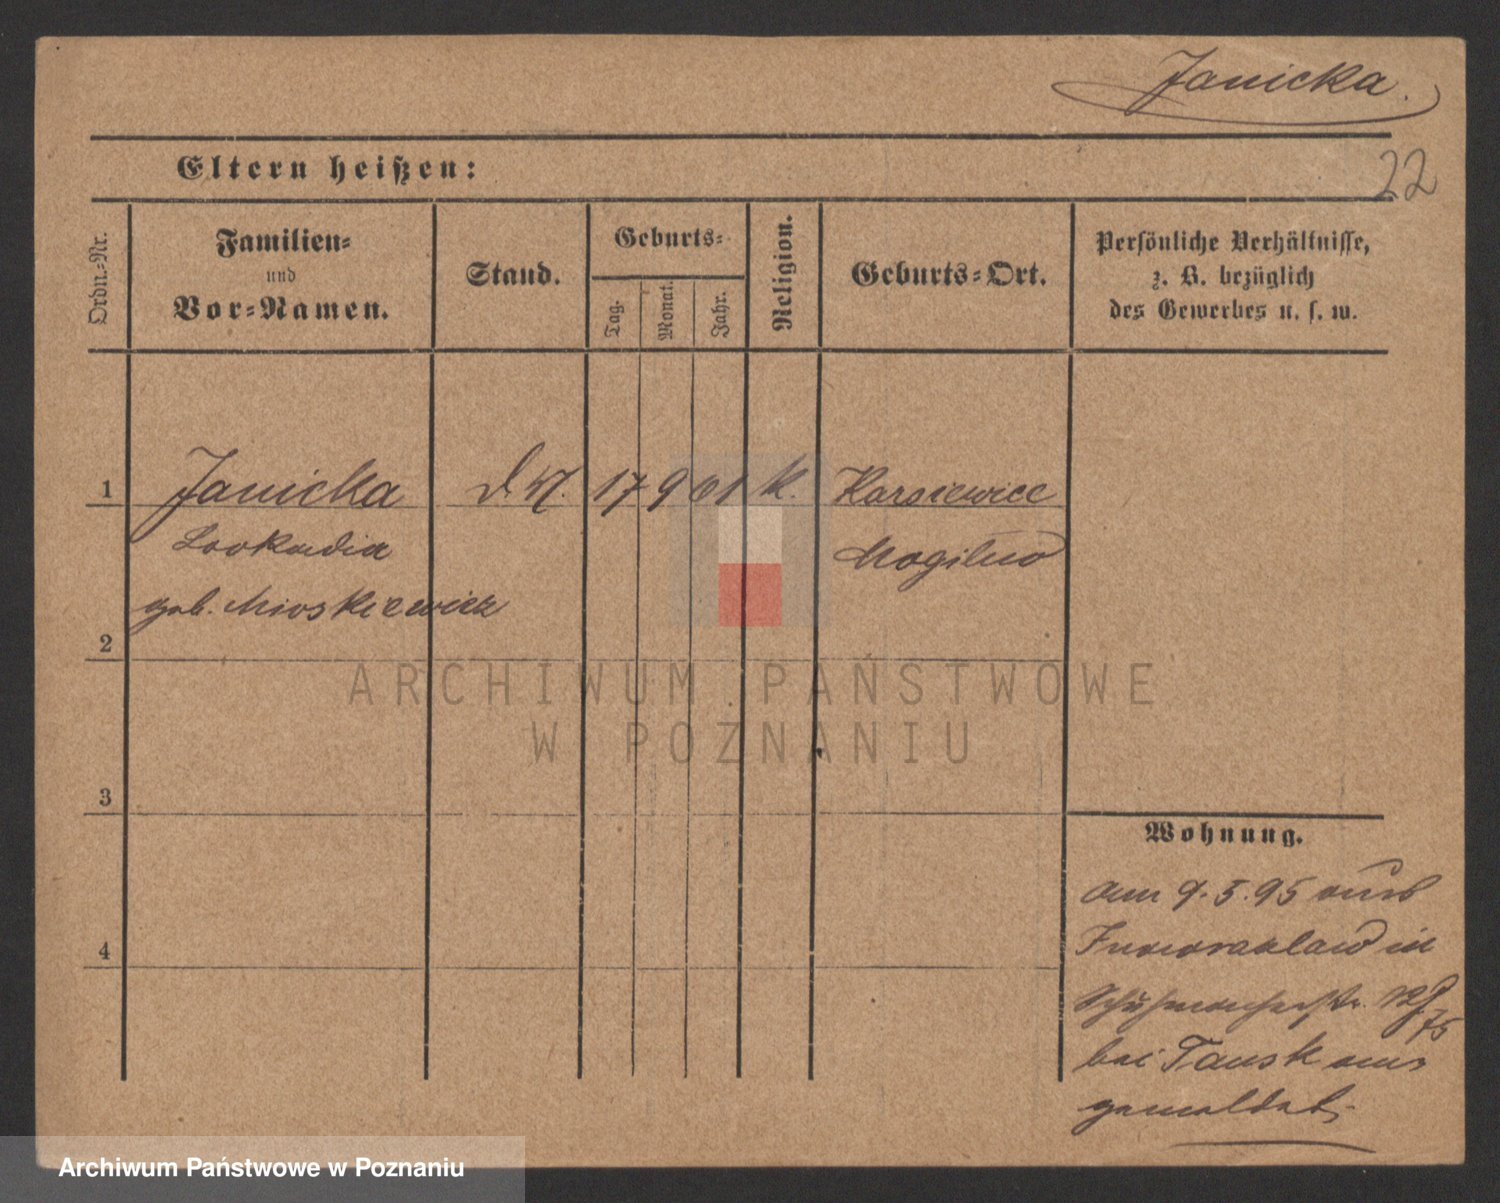 Janicka.
22
Eltern heißen:
Ordn.-Nr.
Familien-
und
Vor-Namen.
Stand.
Geburts-
Tag.
Monat.
Jahr.
Religion.
Geburts-Ort.
Persönliche Verhältnisse,
z. B. bezüglich
des Gewerbes u. s. w.
1 Janicka 17 9 61 k.
Leokadia Mogilno
geb.
2
ARCHIWUM PAŃSTWOWE
W POZNANIU
3
4
Wohnung.
am 9.5.95 aus
Inowrazlaw in
Schuhmacherstr. 12
75
bei Tausk
gemeldet.
Archiwum Państwowe w Poznaniu